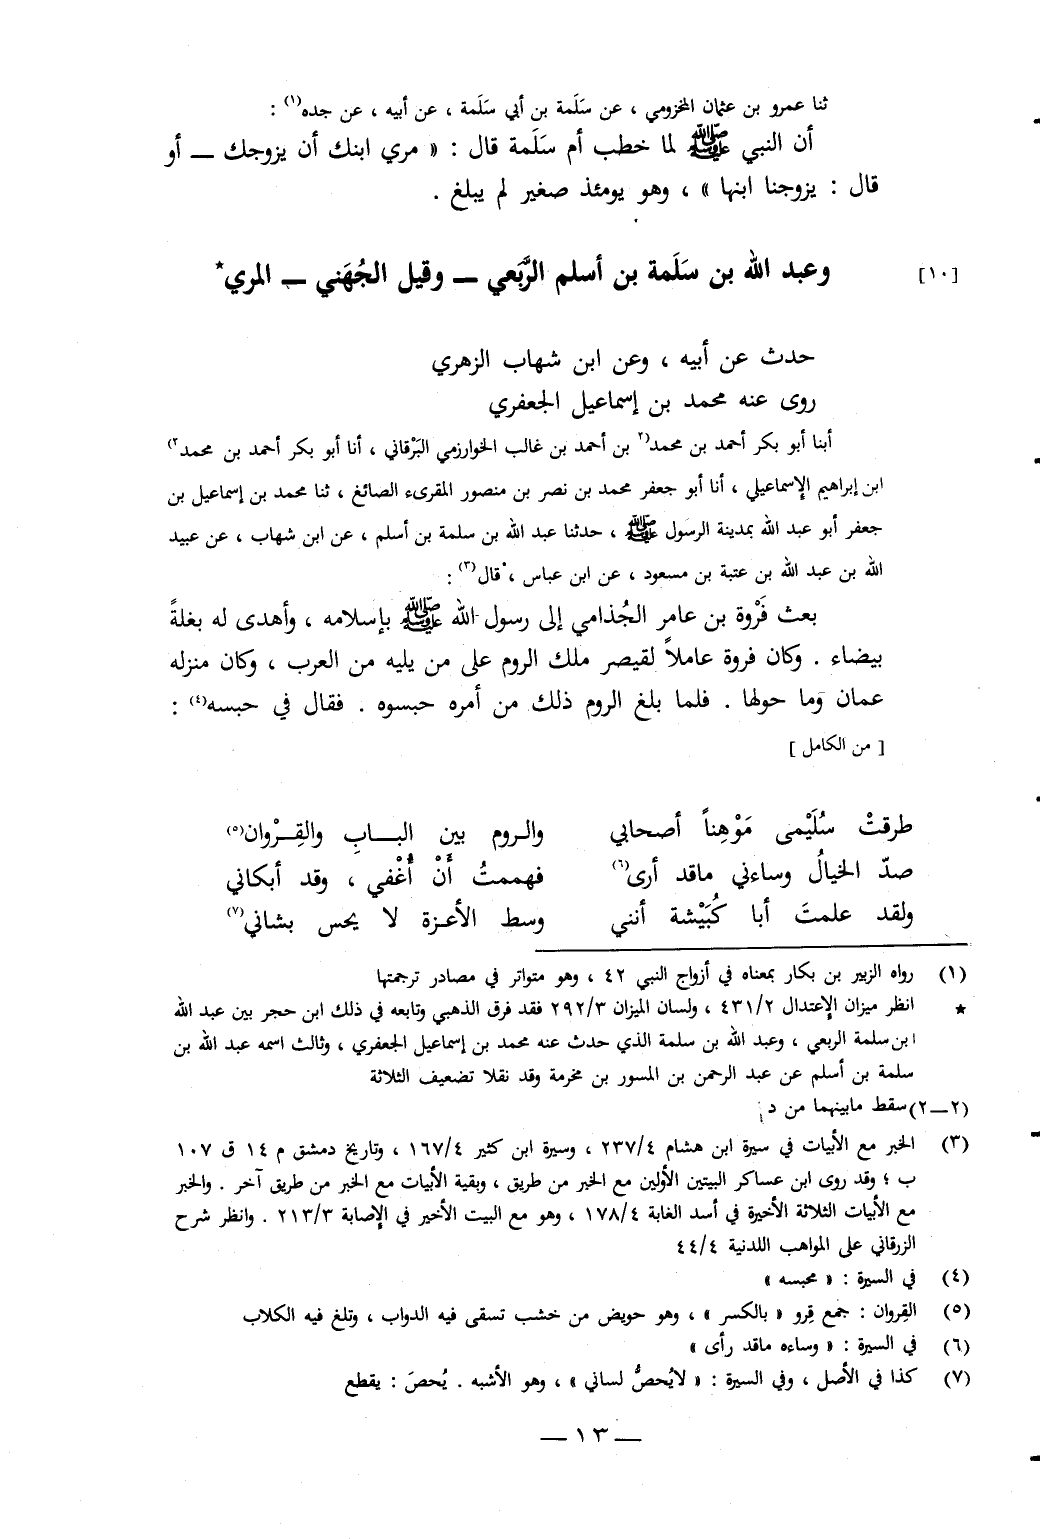 ثنا عمرو بن عثمان المخزومي ، عن سَلَمة بن أبي سَلَمة ، عن أبيه ، عن جده(١) :
أن النبي ﷺ لما خطب أم سَلَمة قال : « مري ابنك أن يزوجك ــ أو
قال : يزوجنا ابنها » ، وهو يومئذ صغير لم يبلغ .
[١٠] وعبد الله بن سَلَمة بن أسلم الرَّبَعي ــ وقيل الجُهَني ــ المري*
حدث عن أبيه ، وعن ابن شهاب الزهري
روى عنه محمد بن إسماعيل الجعفري
أبنا أبو بكر أحمد بن محمد(٢ بن أحمد بن غالب الخوارزمي البَرْقاني ، أنا أبو بكر أحمد بن محمد٢)
ابن إبراهيم الإسماعيلي ، أنا أبو جعفر محمد بن نصر بن منصور المقرىء الصائغ ، ثنا محمد بن إسماعيل بن
جعفر أبو عبد الله بمدينة الرسول ﷺ ، حدثنا عبد الله بن سلمة بن أسلم ، عن ابن شهاب ، عن عبيد
الله بن عبد الله بن عتبة بن مسعود ، عن ابن عباس ، قال(٣) :
بعث فَرْوة بن عامر الجُذامي إلى رسول الله ﷺ بإسلامه ، وأهدى له بغلةً
بيضاء . وكان فروة عاملاً لقيصر ملك الروم على من يليه من العرب ، وكان منزله
عمان وما حولها . فلما بلغ الروم ذلك من أمره حبسوه . فقال في حبسه(٤) :
[ من الكامل ]
طرقتْ سُلَيْمى مَوْهِناً أصحابي والروم بين البـــابِ والقِـرْوان(٥)
صدّ الخيالُ وساءني ماقد أرى(٦) فهممتُ أَنْ أُغْفي ، وقد أبكاني
ولقد علمتَ أبا كُبَيْشة أنني وسط الأعـزة لا يحس بشاني(٧)
(١) رواه الزبير بن بكار بمعناه في أزواج النبي ٤٢ ، وهو متواتر في مصادر ترجمتها
* انظر ميزان الإعتدال ٤٣١/٢ ، ولسان الميزان ٢٩٢/٣ فقد فرق الذهبي وتابعه في ذلك ابن حجر بين عبد الله
ابن سلمة الربعي ، وعبد الله بن سلمة الذي حدث عنه محمد بن إسماعيل الجعفري ، وثالث اسمه عبد الله بن
سلمة بن أسلم عن عبد الرحمن بن المسور بن مخرمة وقد نقلا تضعيف الثلاثة
(٢ــ٢) سقط مابينهما من د
(٣) الخبر مع الأبيات في سيرة ابن هشام ٢٣٧/٤ ، وسيرة ابن كثير ١٦٧/٤ ، وتاريخ دمشق م ١٤ ق ١٠٧
ب ؛ وقد روى ابن عساكر البيتين الأولين مع الخبر من طريق ، وبقية الأبيات مع الخبر من طريق آخر . والخبر
مع الأبيات الثلاثة الأخيرة في أسد الغابة ١٧٨/٤ ، وهو مع البيت الأخير في الإصابة ٢١٣/٣ . وانظر شرح
الزرقاني على المواهب اللدنية ٤٤/٤
(٤) في السيرة : « محبسه »
(٥) القِروان : جمع قِرو « بالكسر » ، وهو حويض من خشب تسقى فيه الدواب ، وتلغ فيه الكلاب
(٦) في السيرة : « وساءه ماقد رأى »
(٧) كذا في الأصل ، وفي السيرة : « لايُحصُّ لساني » ، وهو الأشبه . يُحصَ : يقطع
ــ ١٣ ــ